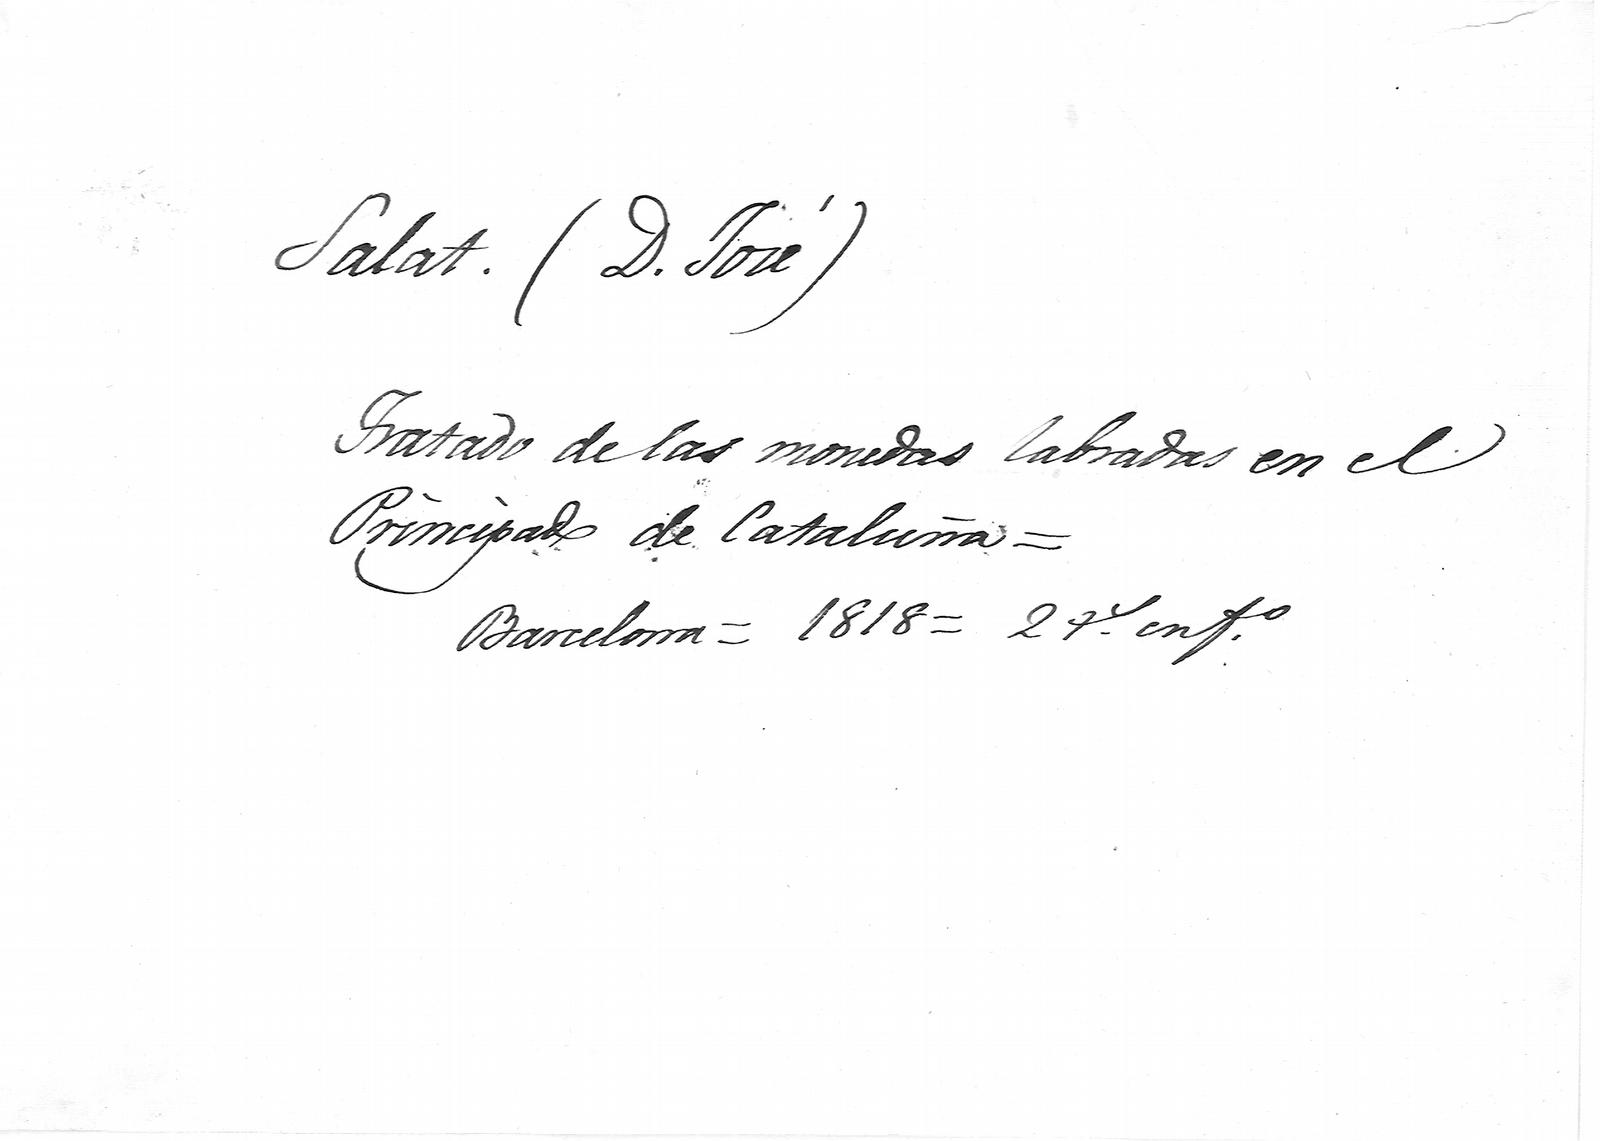 Salat. (D. José)
Tratado de las monedas labradas en el
Principado de Cataluña=
Barcelona= 1818= 2 ts. en f.º